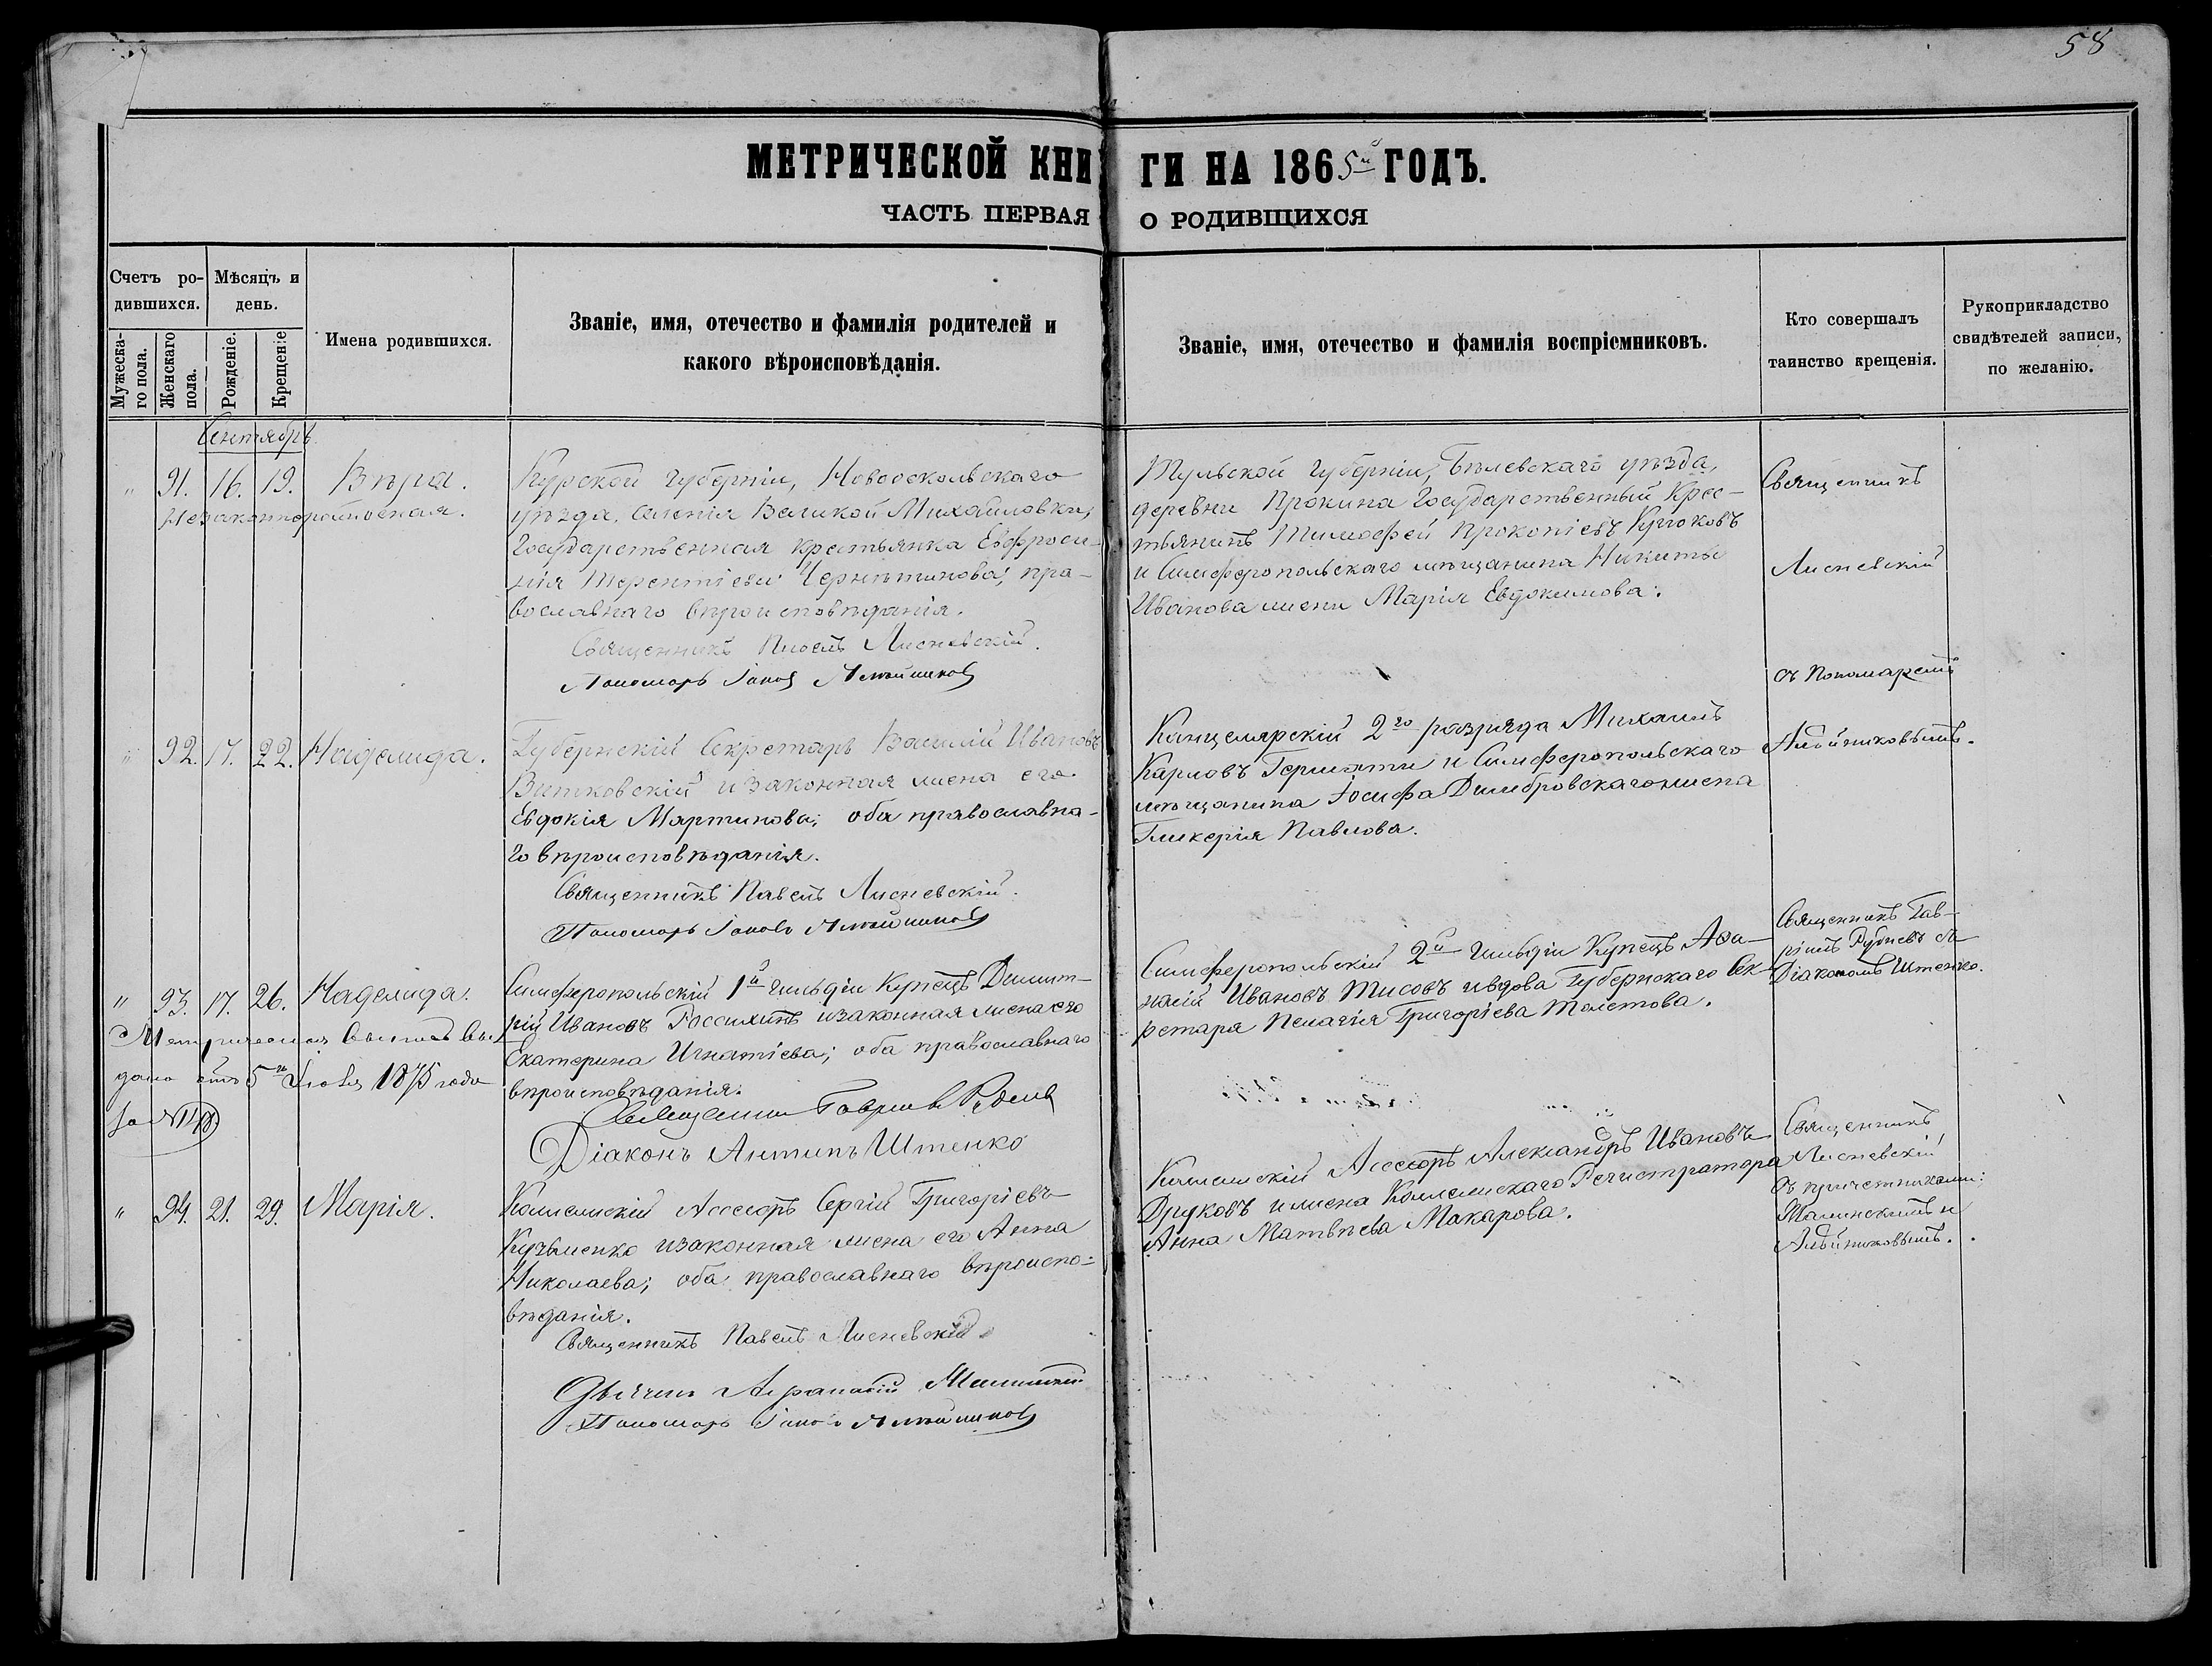 58
МЕТРИЧЕСКОЙ КНИ ГИ НА 1865й ГОДЪ.
ЧАСТЬ ПЕРВАЯ О РОДИВШИХСЯ
Счетъ ро-
дившихся.
Мѣсяцъ и
день.
Мужеска-
го пола.
Женскаго
пола.
Рожденіе.
Крещеніе
Имена родившихся.
Званіе, имя, отечество и фамилія родителей и
какого вѣроисповѣданія.
Званіе, имя, отечество и фамилія воспріемниковъ.
Кто совершалъ
таинство крещенія.
Рукоприкладство
свидѣтелей записи,
по желанію.
Сентябрь.
" 91. 16. 19. Вѣра.
Незаконнорожденная.
Курской губерніи, Новооскольскаго
уѣзда, селенія Великой Михайловки,
Государственная крестьянка Евфроси-
нія Терентіева Чернѣтинова; пра-
вославнаго вѣроисповѣданія.
Священникъ Павелъ Лисневскій.
Пономарь Іаковъ
Тульской губерніи, Бѣлевскаго уѣзда,
деревни Прокина Государственный Крес-
тьянинъ Тимофей Прокопіевъ
и Симферопольскаго мѣщанина Никиты
Иванова жена Марія Евдокимова.
Священникъ
Лисневскій
съ Пономаремъ
" 92. 17. 22. Надежда.
Губернскій Секретарь Василій Ивановъ
Витковскій и законная жена его
Евдокія Мартинова; оба православна-
го вѣроисповѣданія.
Священникъ Павелъ Лисневскій.
Пономарь Іаковъ
Канцелярскій 2го разряда Михаилъ
Карловъ и Симферопольскаго
мѣщанина Іосифа Димбровскаго жена
Гликерія Павлова.
" 93. 17. 26. Надежда.
Метрическая выпись вы-
дана отъ 5го 1875 года
за №
Симферопольскій 1й гильдіи Купецъ Димит-
рій Ивановъ и законная жена его
Екатерина Игнатіева; оба православнаго
вѣроисповѣданія.
Священникъ Гавріилъ Рубчевъ
Діаконъ Антипъ Штенко
Симферопольскій 2й гильдіи Купецъ Аѳа-
насій Ивановъ Тисовъ и вдова Губернскаго Сек-
ретаря Пелагія Григоріева Толстова.
Священникъ Гав-
ріилъ Рубчевъ съ
Діакономъ Штенко.
" 94. 21. 29. Марія.
Коллежскій Ассесоръ Сергій Григоріевъ
Кузьменко и законная жена его Анна
Николаева; оба православнаго вѣроиспо-
вѣданія.
Священникъ Павелъ Лисневскій
Дьячекъ
Пономарь Іаковъ
Коллежскій Ассесоръ Александръ Ивановъ
Друковъ и жена Коллежскаго Регистратора
Анна Матвѣева Макарова.
Священникъ
Лисневскій
съ причетниками: